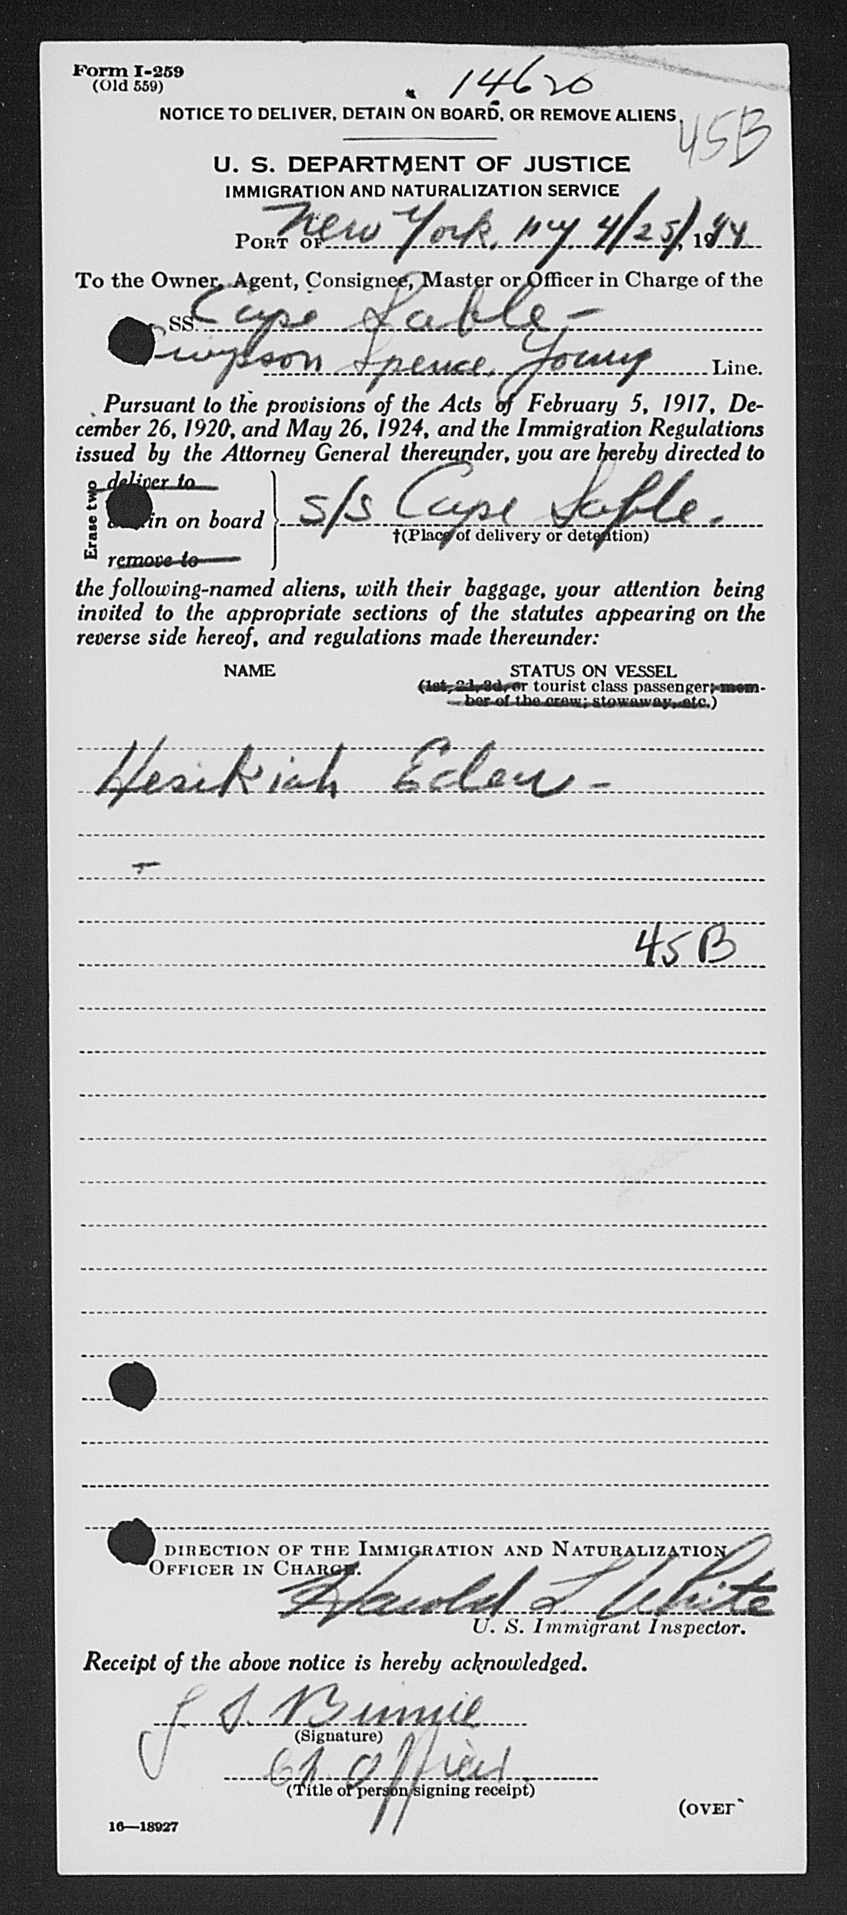 Form I-259
(Old 559)
14620
NOTICE TO DELIVER, DETAIN ON BOARD, OR REMOVE ALIENS
45B
U. S. DEPARTMENT OF JUSTICE
IMMIGRATION AND NATURALIZATION SERVICE
PORT OF New York, NY 4/25/, 1944
To the Owner, Agent, Consignee, Master or Officer in Charge of the
SS. Cape Sable -
Simpson Spence, Young Line.
Pursuant to the provisions of the Acts of February 5, 1917, De-
cember 26, 1920, and May 26, 1924, and the Immigration Regulations
issued by the Attorney General thereunder, you are hereby directed to
Erase two
deliver to
in on board
remove to
S/S Cape Sable.
†(Place of delivery or detention)
the following-named aliens, with their baggage, your attention being
invited to the appropriate sections of the statutes appearing on the
reverse side hereof, and regulations made thereunder:
NAME STATUS ON VESSEL
(1st, 2d, 3d, or tourist class passenger; mem-
ber of the crew; stowaway, etc.)
Hesikiah Eden -
45 B
DIRECTION OF THE IMMIGRATION AND NATURALIZATION
OFFICER IN CHARGE.
Harold L White
U. S. Immigrant Inspector.
Receipt of the above notice is hereby acknowledged.
J S. Binnie
(Signature)
Ch. Officer
(Title of person signing receipt)
(OVER
16—18927